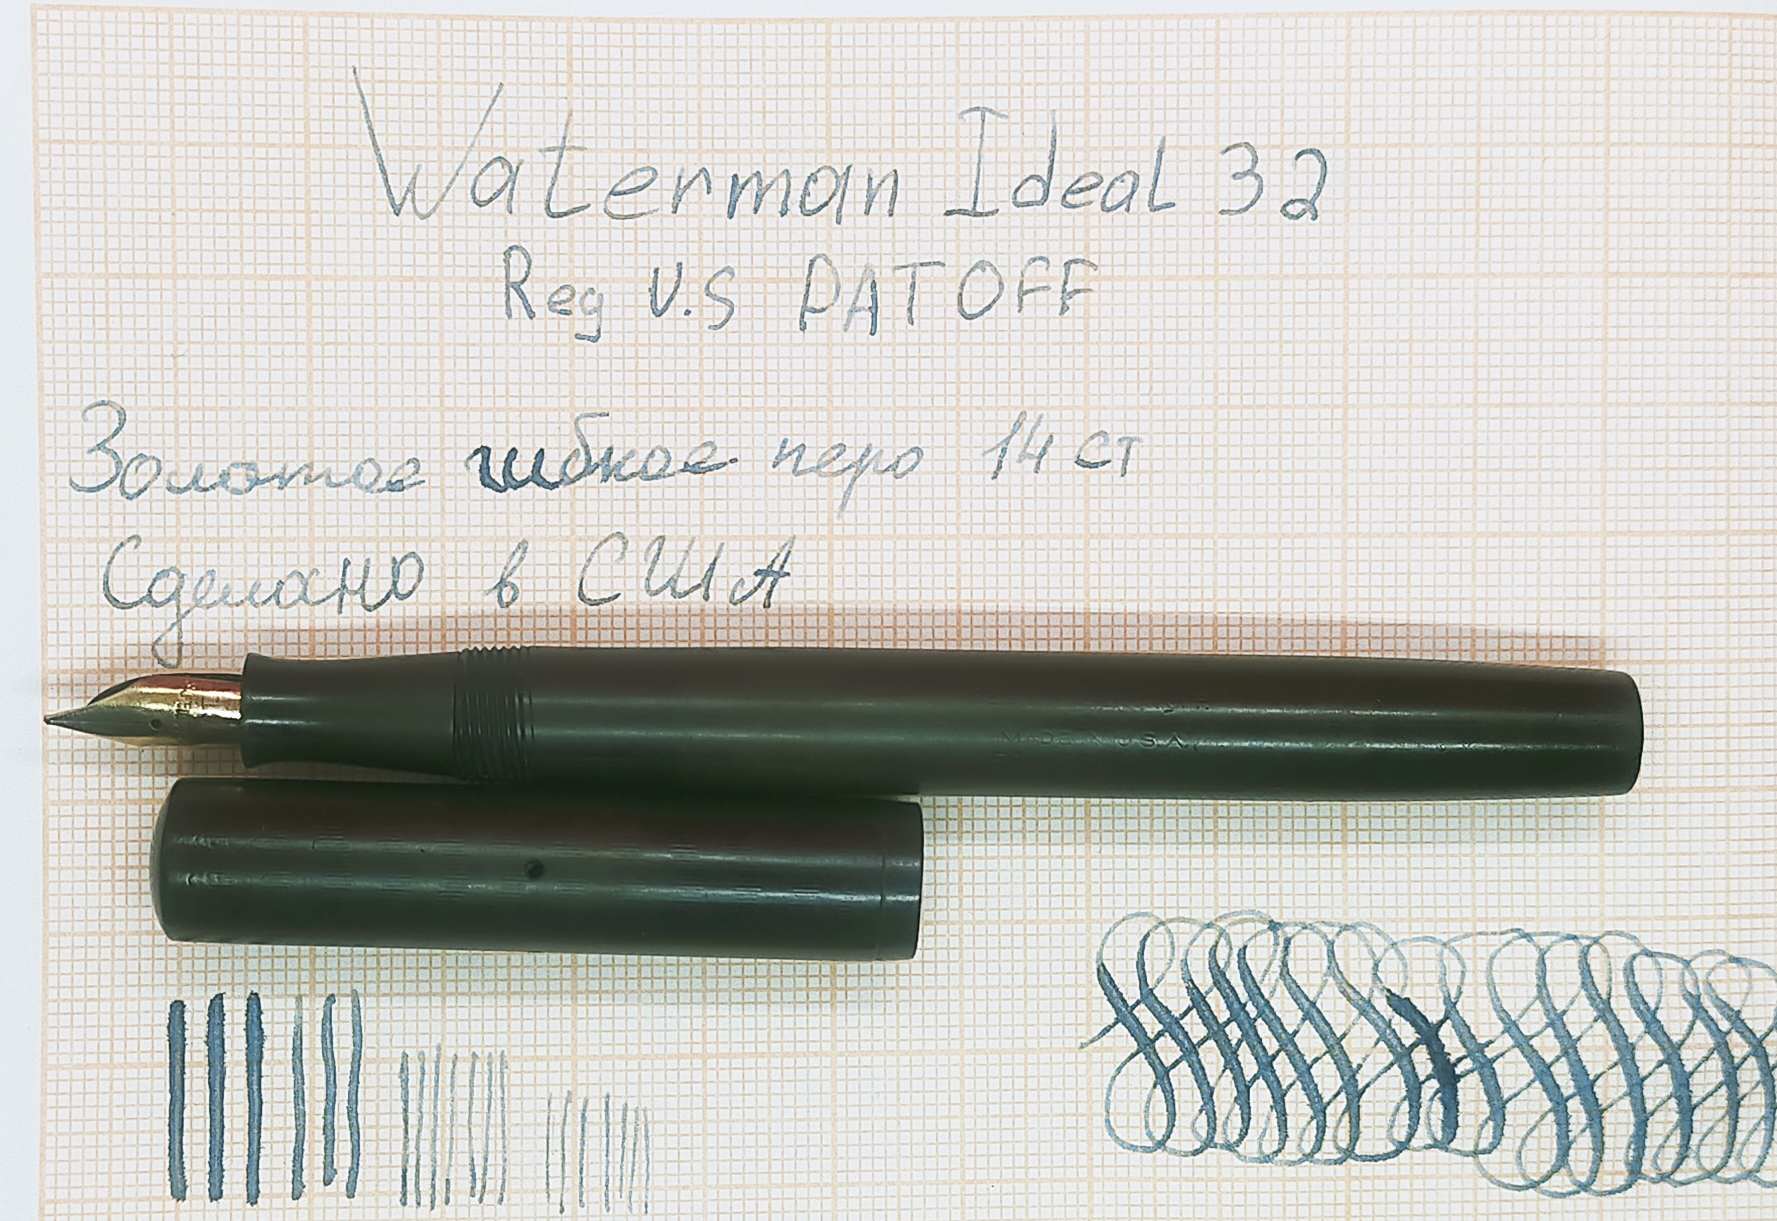 Waterman Ideal 32
Reg U.S PAT OFF
Золотое гибкое перо 14 ст
Сделано в США
MADE IN U S A